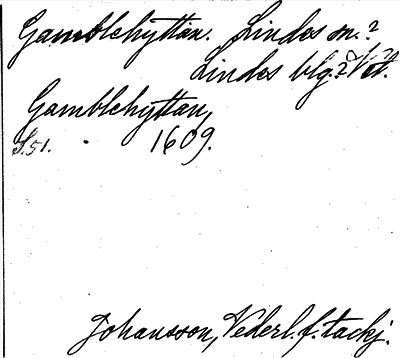 Gamblehyttan. Lindes sn.?
Lindes blg.? Vstm.
Gamblehyttan,
S. 51. 1609.
Johansson, Vederl. f. tackj.